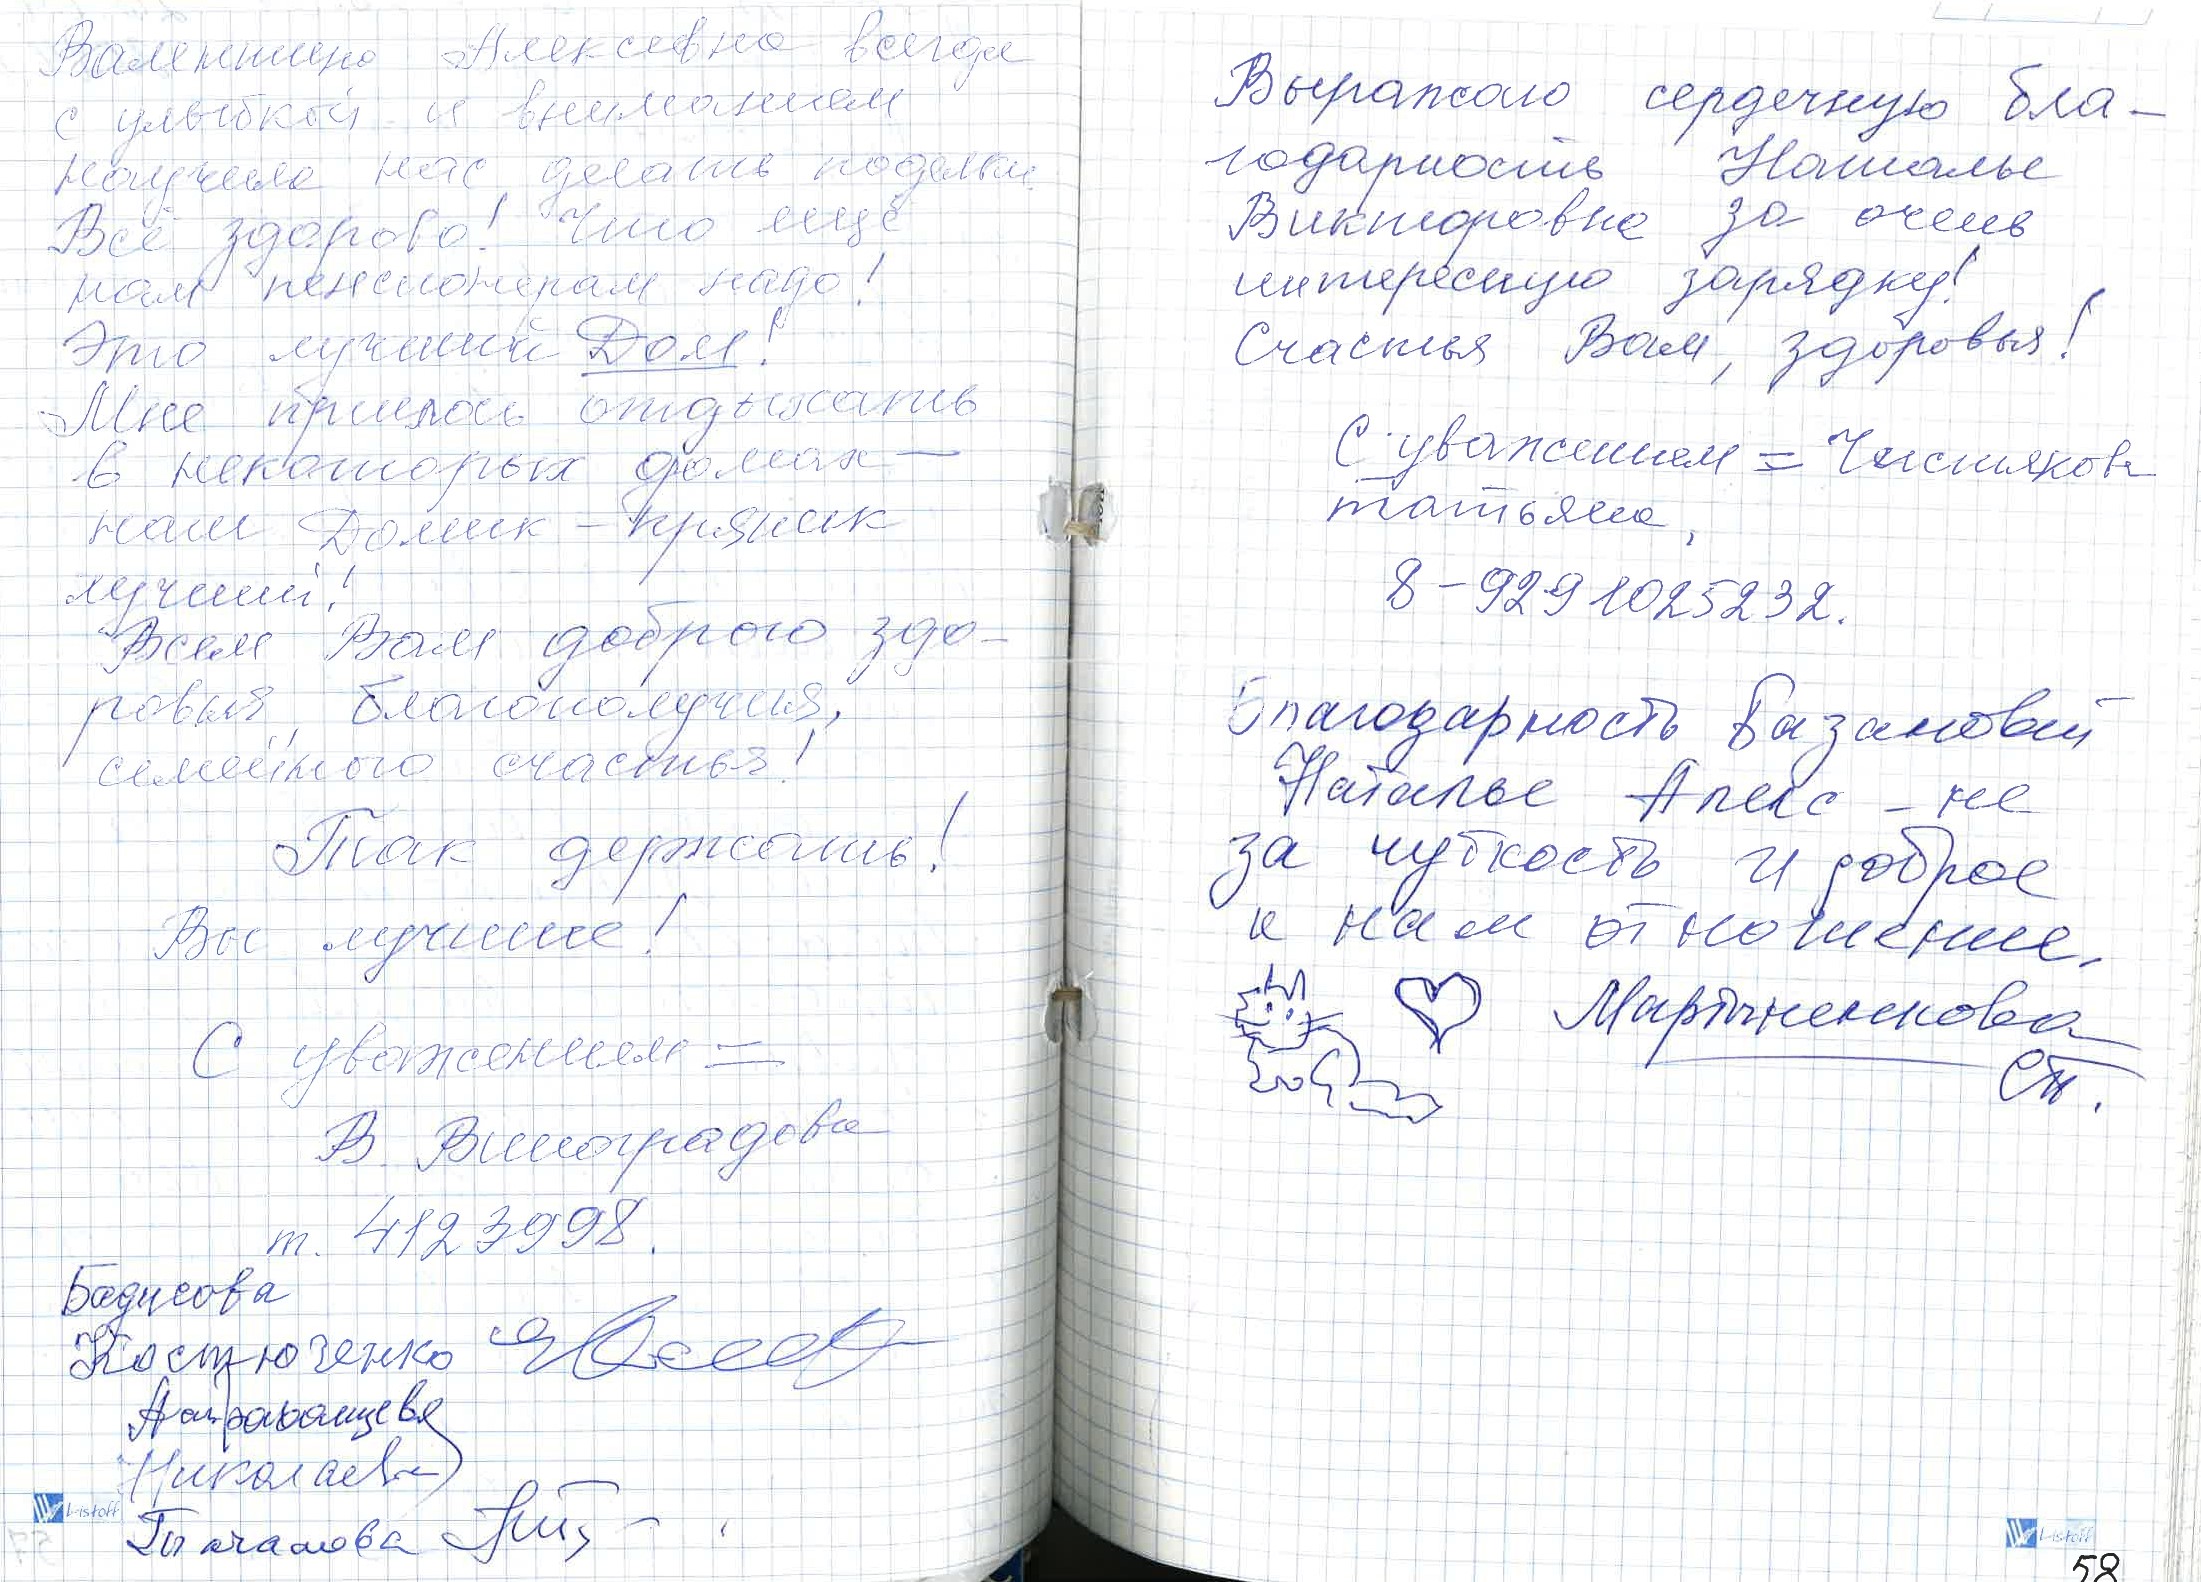 Валентина Алексевна всегда
с улыбкой и вниманием
научила нас делать поделки
Всё здорово! Что ещё
нам пенсионерам надо!
Это лучший Дом!
Мне пришлось отдыхать
в некоторых домах –
наш Домик – пряник
лучший!
Всем Вам доброго здо-
ровья, благополучия,
семейного счастья!
Так держать!
Вы лучшие!
С уважением =
В. Виноградова
т. 4123998.
Костюченко
Николаева
Listoff
Выражаю сердечную бла-
годарность Наталье
Викторовне за очень
интересную зарядку!
Счастья Вам, здоровья!
С уважением = Чистякова
Татьяна,
8-9291025232.
Благодарность Базановой
Наталье Алекс-не
за чуткость и доброе
к нам отношение.
Мартыненкова
СП.
Listoff
58